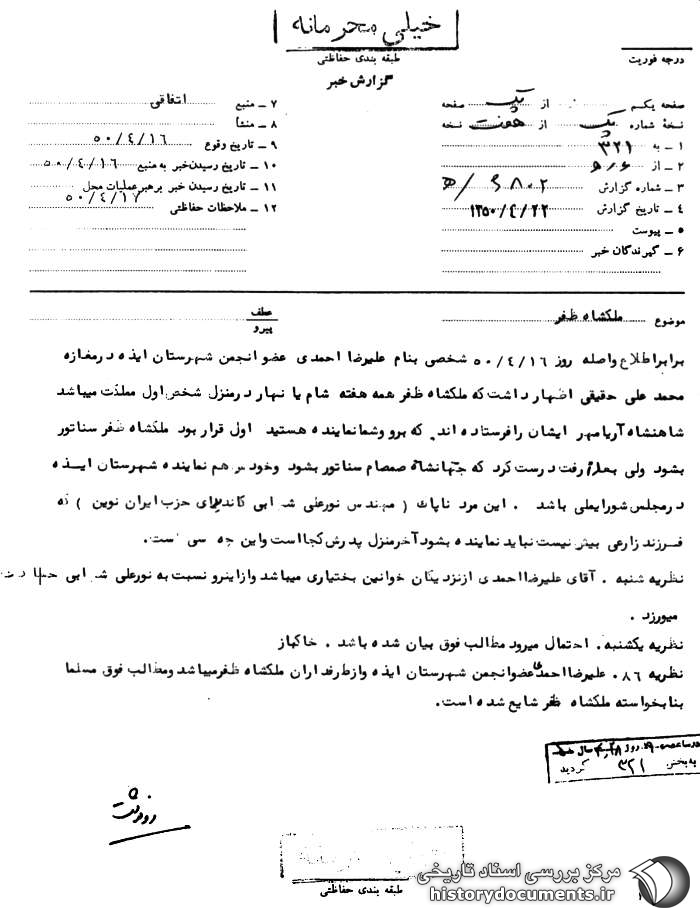 خیلی محرمانه
طبقه بندی حفاظتی
گزارش خبر
درجه فوریت
صفحه یکم از یک صفحه
نسخهٔ شماره یک از هفت نسخه
۱ ـ به ۳۲۱
۲ ـ از
۳ ـ شماره گزارش
۴ ـ تاریخ گزارش ۱۳۵۰/۴/۲۲
۵ ـ پیوست
۶ ـ گیرندگان خبر
۷ ـ منبع اتفاقی
۸ ـ منشأ
۹ ـ تاریخ وقوع ۵۰/۴/۱۶
۱۰ ـ تاریخ رسیدن خبر به منبع ۵۰/۴/۱۶
۱۱ ـ تاریخ رسیدن خبر برهبر عملیات محل ۵۰/۴/۱۷
۱۲ ـ ملاحظات حفاظتی
موضوع ملکشاه ظفر
عطف
پیرو
برابر اطلاع واصله روز ۵۰/۴/۱۶ شخصی بنام علیرضا احمدی عضو انجمن شهرستان ایذه در مغازه
محمد علی حقیقی اظهار داشت که ملکشاه ظفر همه هفته شام یا نهار در منزل شخص اول مملکت میباشد
شاهنشاه آریامهر ایشان را فرستاده اند که برو شما نماینده هستید اول قرار بود ملکشاه ظفر سناتور
بشود ولی بعداً رفت درست کرد که جهانشاه صمصام سناتور بشود وخودش هم نماینده شهرستان ایذه
در مجلس شورایملی باشد . این مرد ناپاك ( مهندس نورعلی کاندیدای حزب ایران نوین ) که
فرزند زارعی بیش نیست نباید نماینده بشود آخر منزل پدرش کجا است واین چه کسی است.
نظریه شنبه . آقای علیرضا احمدی از نزدیکان خوانین بختیاری میباشد وازاینرو نسبت به نورعلی
میورزد .
نظریه یکشنبه . احتمال میرود مطالب فوق بیان شده باشد . خاکباز
نظریه ۸۶. علیرضا احمدی عضو انجمن شهرستان ایذه وازطرفداران ملکشاه ظفر میباشد ومطالب فوق مسلما
بنا بخواسته ملکشاه ظفر شایع شده است.
درساعت ۹ روز سال
به بخش ۳۲۱ گردید
طبقه بندی حفاظتی
مرکز بررسی اسناد تاریخی
historydocuments.ir